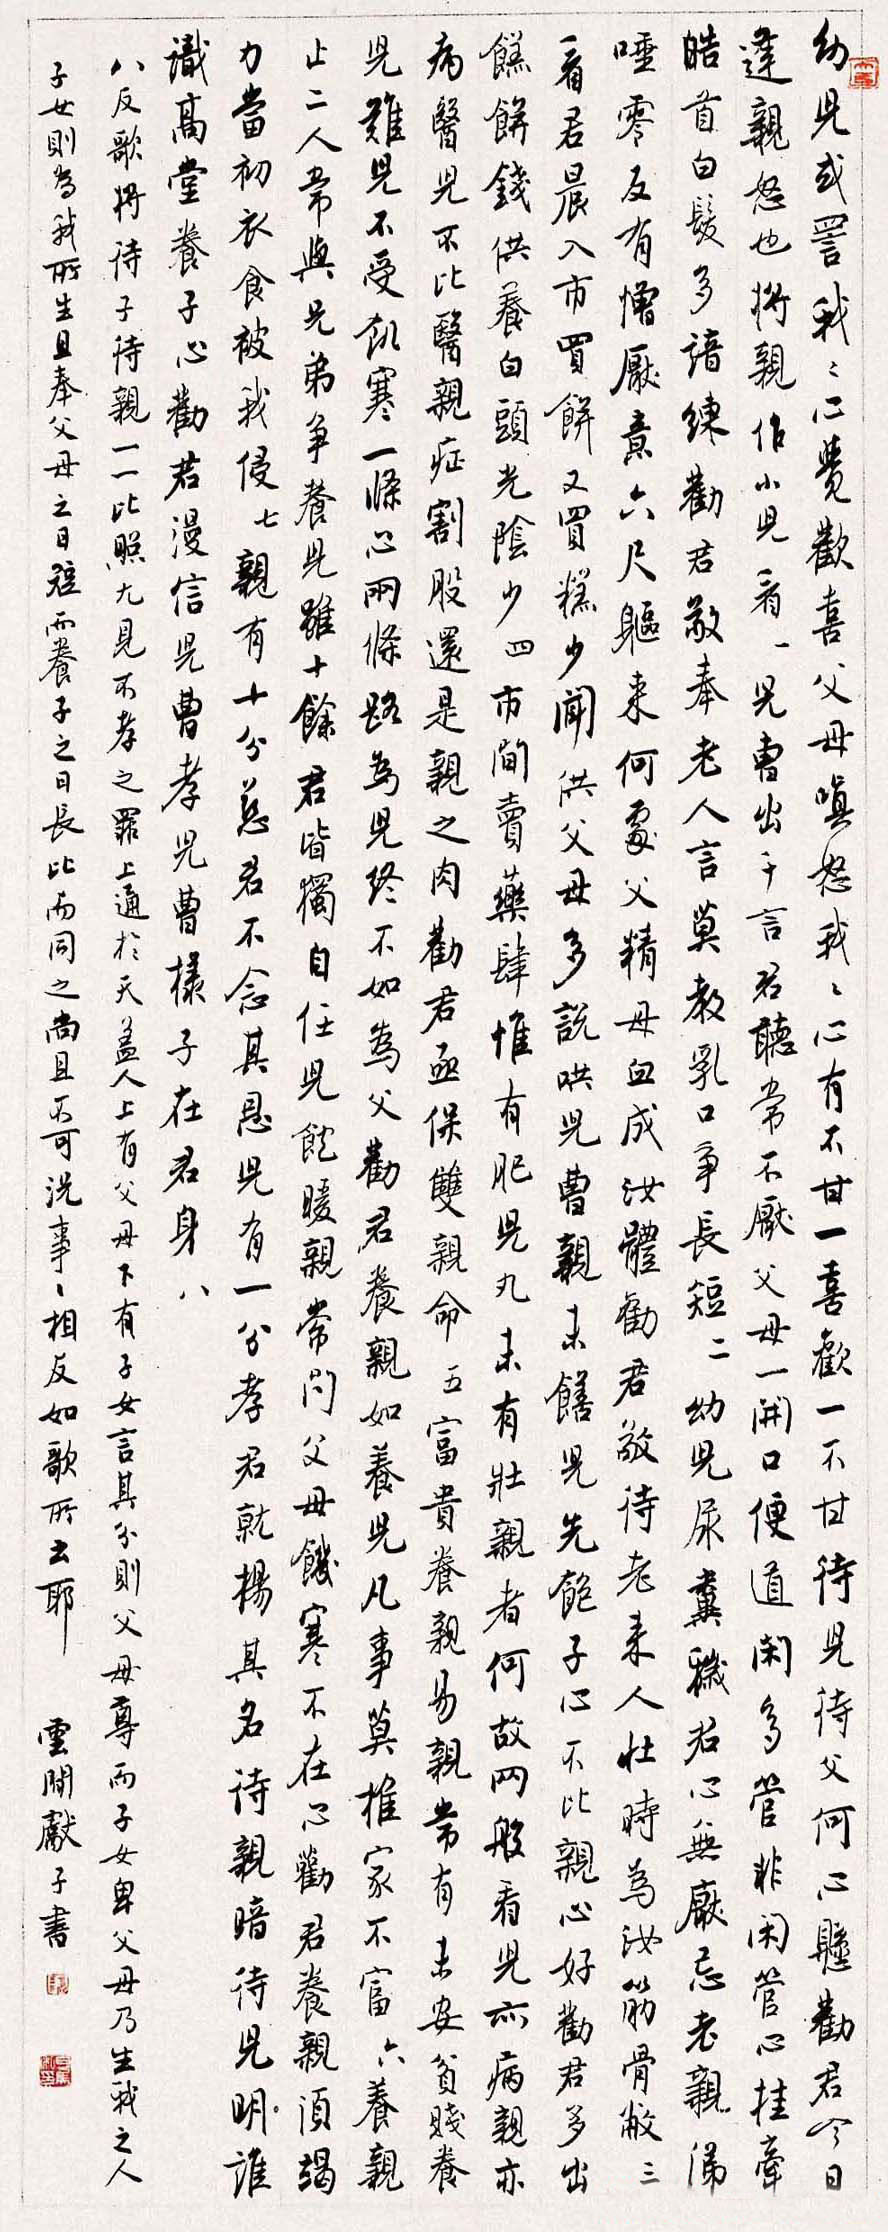 幼兒或詈我〻心覺歡喜父母嗔怒我〻心有不甘一喜歡一不甘待兒待父何心懸勸君今日
逢親怒也將親作小兒看一兒曹出千言君聽常不厭父母一開口便道閑多管非閑管心挂牽
皓首白髮多諳練勸君敬奉老人言莫教乳口爭長短二幼兒尿糞穢君心無厭忌老親涕
唾零反有憎厭意六尺軀来何處父精母血成汝體勸君敬待老来人壯時為汝筋骨敝三
看君晨入市買餅又買糕少聞供父母多說哄兒曹親未饍兒先飽子心不比親心好勸君多出
糕餅錢供養白頭光陰少四市間賣藥肆惟有肥兒丸未有壯親者何故兩般看兒亦病親亦
病醫兒不比醫親症割股還是親之肉勸君亟保雙親命五富貴養親易親常有未安貧賤養
兒難兒不受飢寒一條心兩條路為兒終不如為父勸君養親如養兒凡事莫推家不富六養親
止二人常與兄弟爭養兒雖十餘君皆獨自任兒飽暖親常問父母饑寒不在心勸君養親須竭
力當初衣食被我侵七親有十分慈君不念其恩兒有一分孝君就揚其名待親暗待兒明誰
識高堂養子心勸君漫信兒曹孝兒曹樣子在君身八
八反歌將待子待親一一比照尢見不孝之罪上通於天蓋人上有父母下有子女言其分則父母尊而子女卑父母乃生我之人
子女則為我所生且奉父母之日短而養子之日長比而同之尚且不可況事〻相反如歌所云耶
雲間獻子書